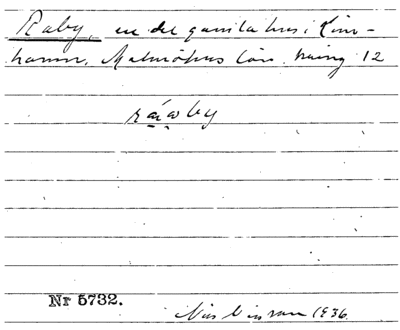 Raby, en del gamla hus i Kim-
hamn, Malmöhus län, kring 12
råaby
Nr 5732.
Nils 1936.